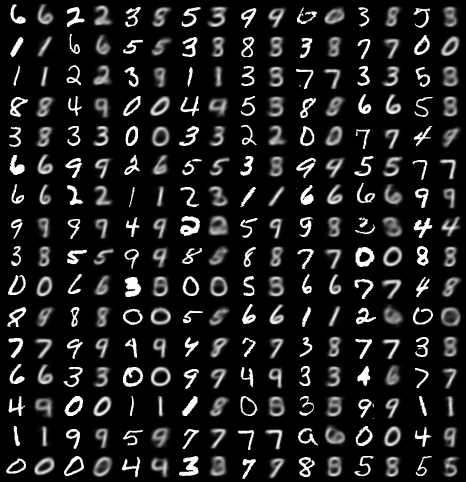 6 6 2 2 3 8 5 3 9 9 6 0 3 8 5 8
1 1 6 6 5 5 3 8 8 8 3 8 7 7 0 0
1 1 2 2 3 9 1 1 3 3 7 7 3 3 5 8
8 8 4 9 0 0 4 9 5 3 8 8 6 6 5 8
3 8 3 3 0 0 3 3 2 2 0 0 7 7 4 9
6 6 9 9 2 6 5 5 3 8 9 9 5 5 7 7
6 6 2 2 1 1 2 3 1 1 6 6 6 6 9 9
9 9 9 9 4 9 2 5 9 9 8 3 3 4 4
3 8 5 5 9 9 8 8 8 8 7 7 0 0 8 8
0 0 6 6 3 8 0 0 5 3 6 6 7 7 4 8
8 9 8 8 0 0 5 5 6 6 1 1 2 6 0 0
7 7 9 9 9 9 4 8 7 7 3 8 7 7 3 8
6 6 3 3 0 0 9 9 4 9 3 3 4 6 7 7
4 9 0 0 1 1 1 8 0 8 3 8 9 9 1 1
1 1 9 9 5 9 7 7 7 7 6 0 0 4 9
0 0 0 0 4 4 3 3 7 7 8 8 5 8 5 5